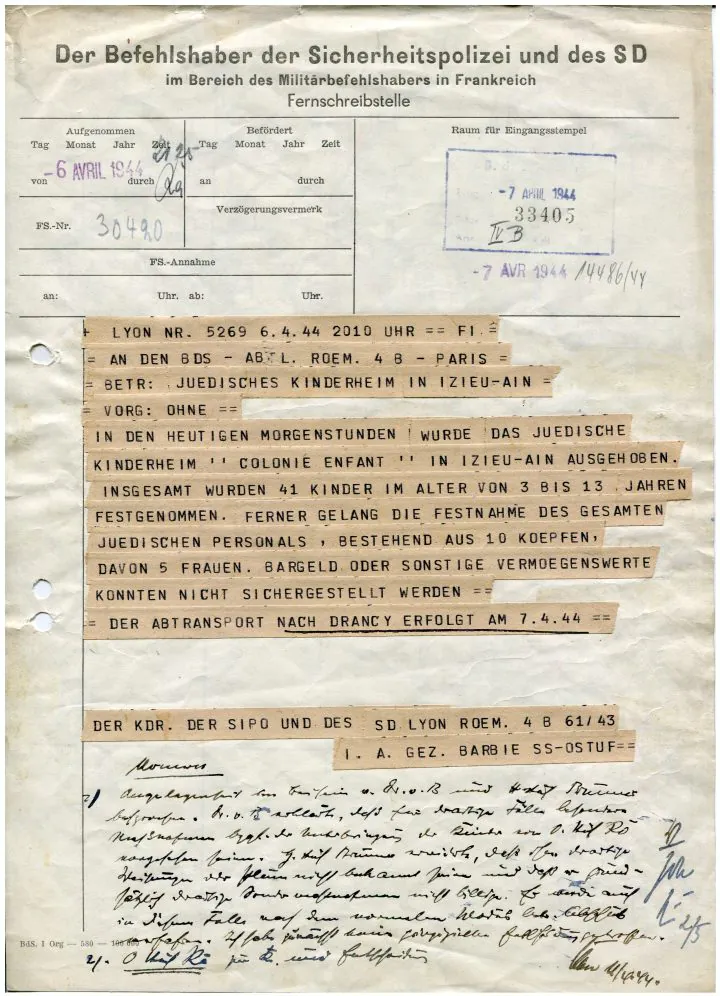 Der Befehlshaber der Sicherheitspolizei und des SD
im Bereich des Militärbefehlshabers in Frankreich
Fernschreibstelle
Aufgenommen
Tag Monat Jahr Zeit
-6 AVRIL 1944
von durch
Befördert
Tag Monat Jahr Zeit
an durch
Verzögerungsvermerk
FS.-Nr. 30420
FS.-Annahme
an: Uhr. ab: Uhr.
Raum für Eingangsstempel
-7 APRIL 1944
33405
IV B
-7 AVR 1944 14486/44
+ LYON NR. 5269 6.4.44 2010 UHR == FI =
= AN DEN BDS - ABTL. ROEM. 4 B - PARIS =
= BETR: JUEDISCHES KINDERHEIM IN IZIEU-AIN =
= VORG: OHNE ==
IN DEN HEUTIGEN MORGENSTUNDEN WURDE DAS JUEDISCHE
KINDERHEIM '' COLONIE ENFANT '' IN IZIEU-AIN AUSGEHOBEN.
INSGESAMT WURDEN 41 KINDER IM ALTER VON 3 BIS 13 JAHREN
FESTGENOMMEN. FERNER GELANG DIE FESTNAHME DES GESAMTEN
JUEDISCHEN PERSONALS , BESTEHEND AUS 10 KOEPFEN,
DAVON 5 FRAUEN. BARGELD ODER SONSTIGE VERMOEGENSWERTE
KONNTEN NICHT SICHERGESTELLT WERDEN ==
= DER ABTRANSPORT NACH DRANCY ERFOLGT AM 7.4.44 ==
DER KDR. DER SIPO UND DES SD LYON ROEM. 4 B 61/43
I. A. GEZ. BARBIE SS-OSTUF==
Angelegenheit v. B und
besprochen. Dr. v. B erklärte, daß für derartige Fälle besondere
Maßnahmen der Unterbringung der Kinder von
vorgesehen seien. erwiderte, daß ihm derartige
Weisungen oder nicht bekannt seien und daß er
derartige Sondermaßnahmen nicht billige. Er werde auch
in diesem Falle nach dem normalen
verfahren. Ich habe zunächst keine
2/5
2). und Entscheidung
BdS. I Org — 580 —